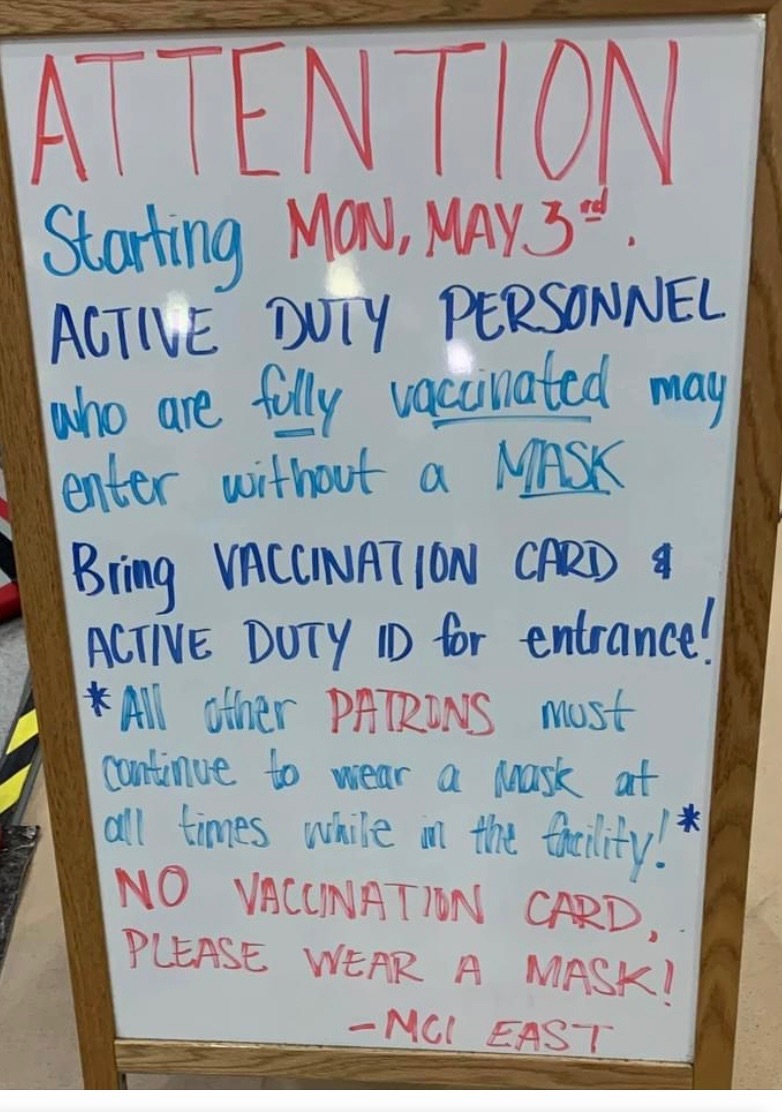 ATTENTION
Starting MON, MAY 3rd.
ACTIVE DUTY PERSONNEL
who are fully vaccinated may
enter without a MASK
Bring VACCINATION CARD &
ACTIVE DUTY ID for entrance!
*All other PATRONS must
continue to wear a mask at
all times while in the facility!*
NO VACCINATION CARD,
PLEASE WEAR A MASK!
-MCI EAST